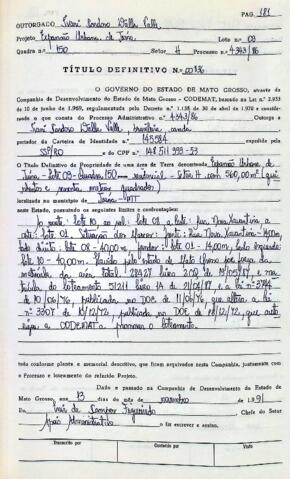 PAG. 181
OUTORGADO
Projeto Expansão Urbana de Juína Lote n.o 09
Quadra n.o 150 Setor H Processo n.o 4343/86
TÍTULO DEFINITIVO N.o 00136
O GOVERNO DO ESTADO DE MATO GROSSO, através da
Companhia de Desenvolvimento do Estado de Mato Grosso - CODEMAT, baseado na Lei n.o 2.933
de 10 de junho de 1969, regulamentada pelo Decreto n.o 1.138 de 30 de abril de 1970 e consideran-
do o que consta do Processo Administrativo n.o 4343/86 Outorga a
brasileira, casada
portador da Carteira de Identidade n.o 145584 expedida pela
SSP/RO e do CPF n.o
O Título Definitivo de Propriedade de uma área de Terra denominada Expansão Urbana de
Juína - lote 09 - Quadra 150 - residencial - Setor H com 560,00m² (qui
nhentos e sessenta metros quadrados)
localizada no município de Juína - MT
neste Estado, possuindo os seguintes limites e confrontações:
lote 10, ao sul: lote 08 a leste: rua Nova Xavantina a
lote 01.
lado direito: lote 08 - 40,00m fundos: lote 01 - 14,00m, lado esquerdo:
lote 10 - 40,00m.
matrícula da área total: livro 2CQ de 19/05/87, e ma
trícula do loteamento livro de 21/08/87 e a lei n.o
de 10/06/76, publicada no DOE de 11/06/76, que altera a lei
n.o 3307 de 18/12/72, publicada no DOE de que auto
riza a CODEMAT a promover o loteamento.
tudo conforme planta e memorial descritivo, que ficam arquivados nesta Companhia, juntamente com
o Processo e loteamento do referido Projeto.
Dado e passado na Companhia de Desenvolvimento do Estado de
Mato Grosso, aos 13 dias do mês de novembro de 1991
Eu, Luiz de Campos Figueiredo Chefe do Setor
Apoio Administrativo o fiz escrever e assino.
Transcrito por
Conferido por
Visto